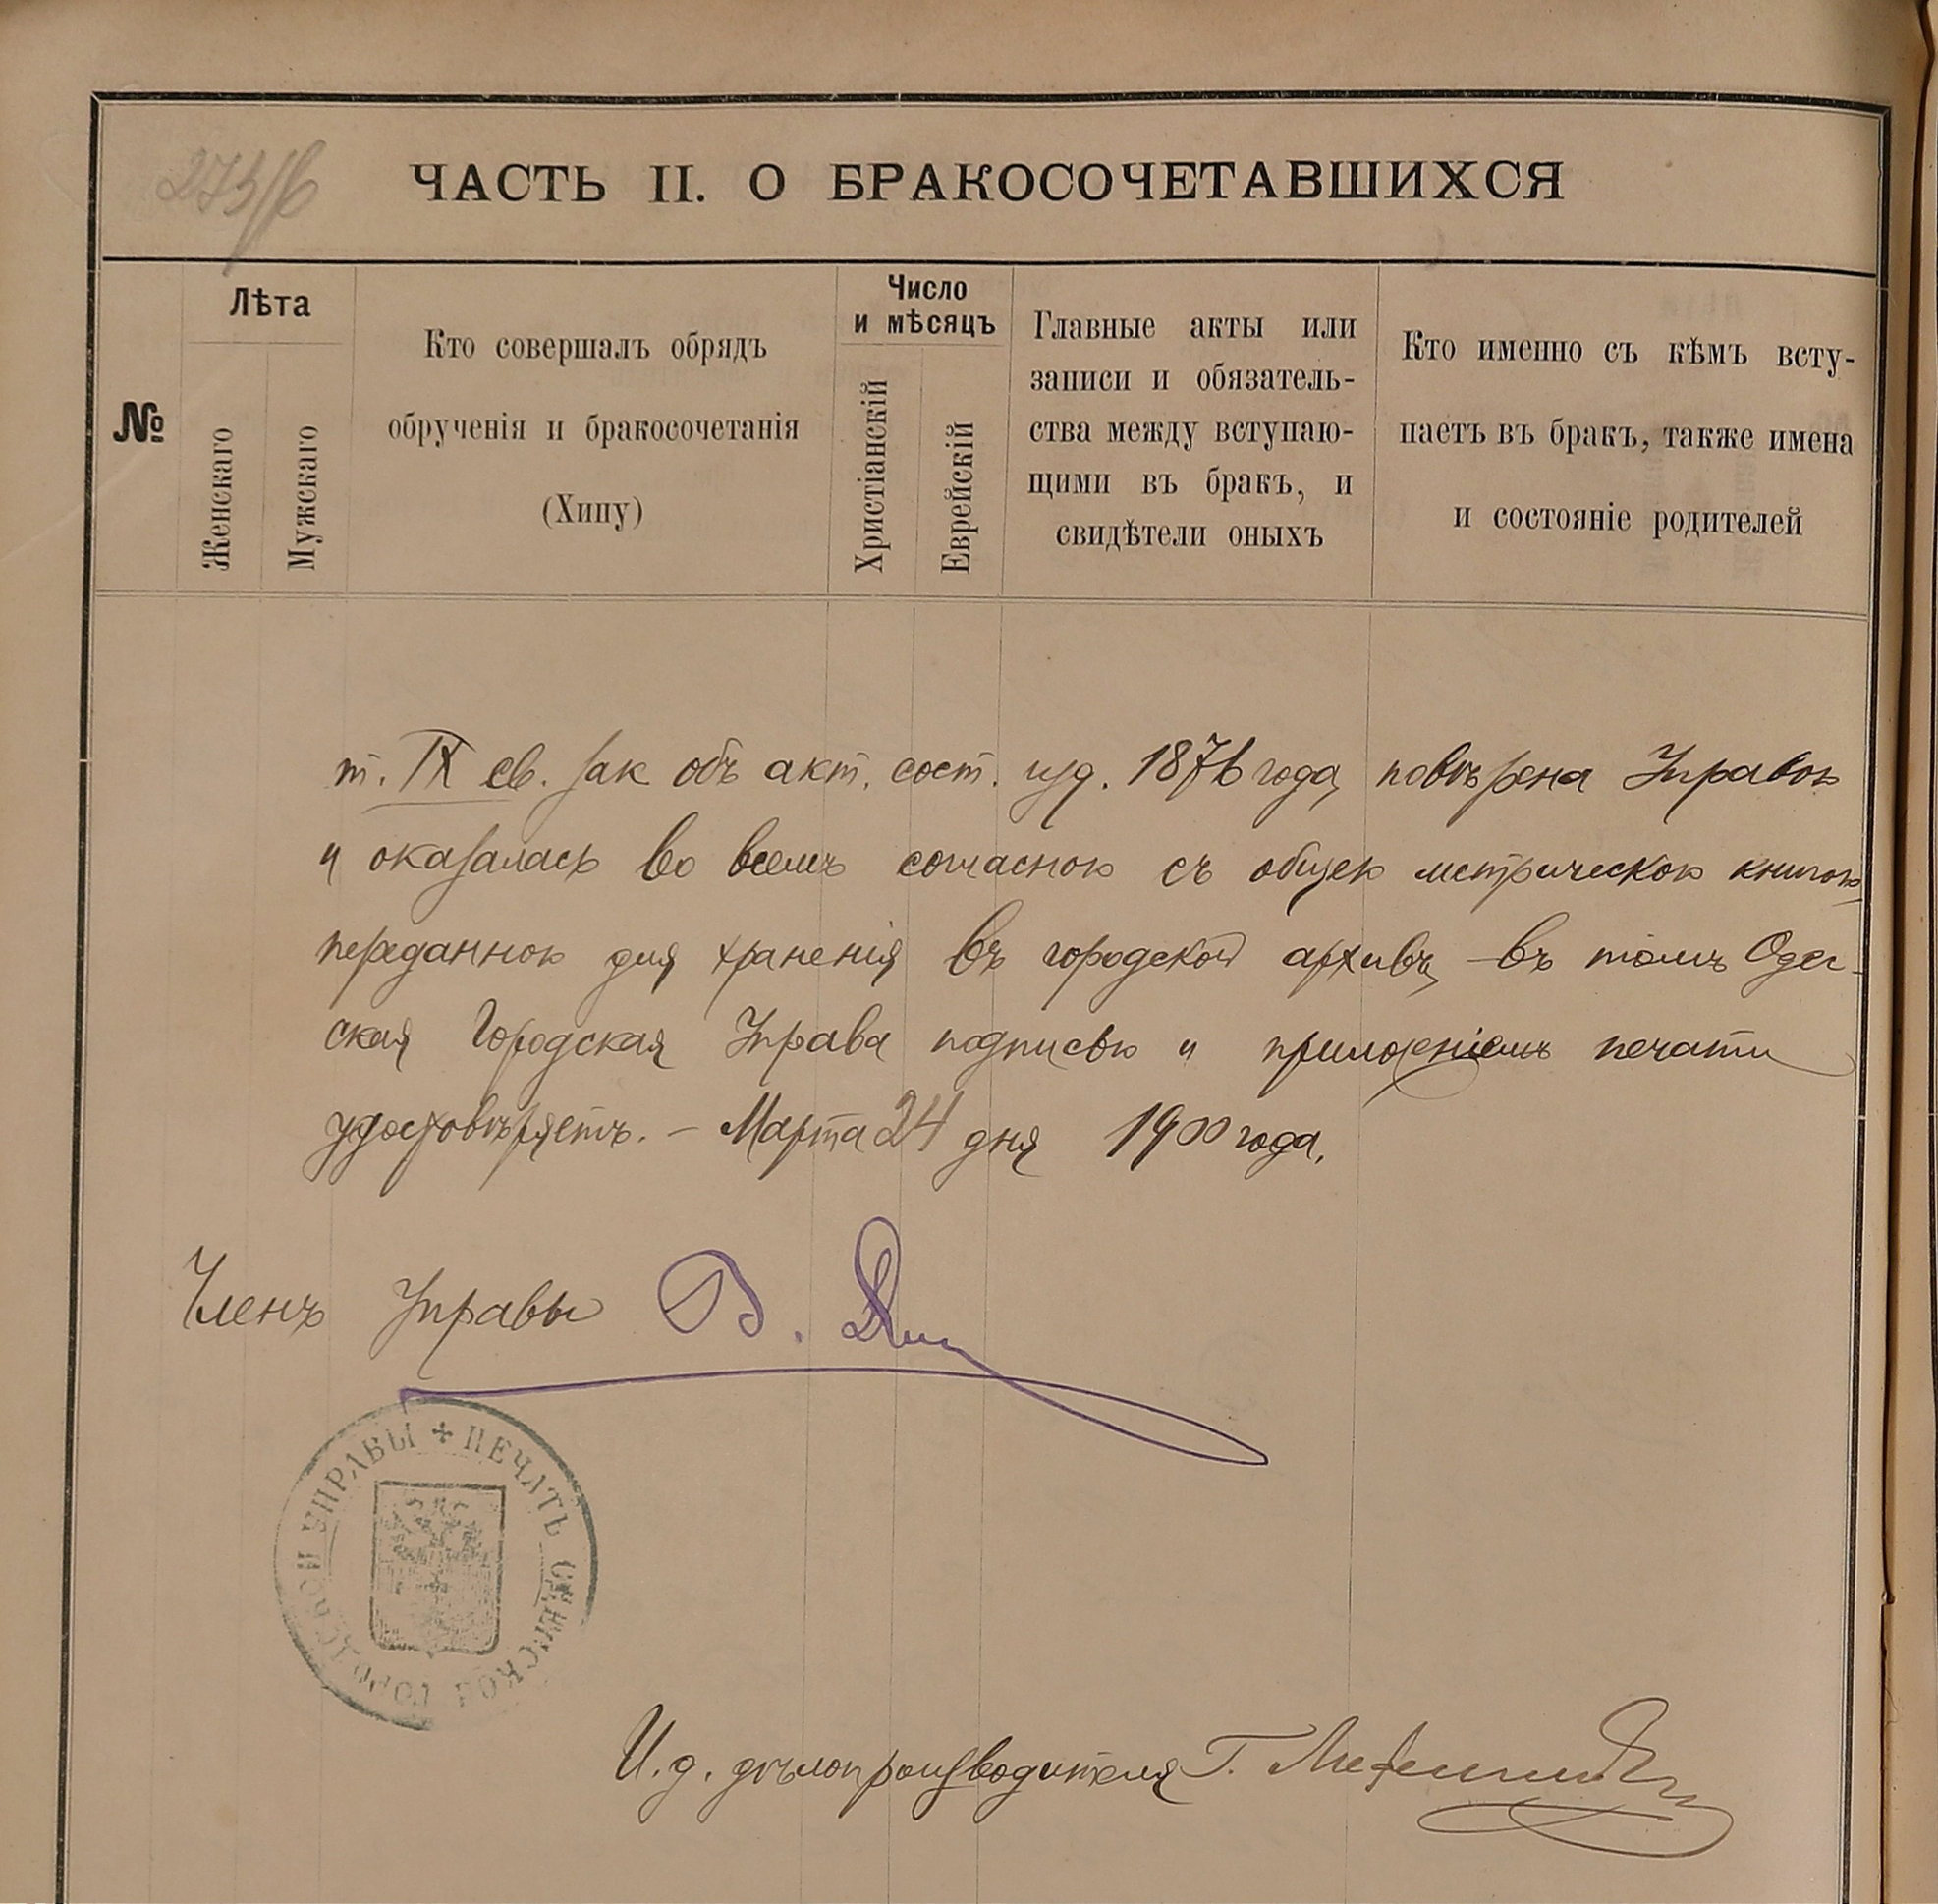 ЧАСТЬ II. О БРАКОСОЧЕТАВШИХСЯ
№
Лѣта
Женскаго
Мужскаго
Кто совершалъ обрядъ
обрученія и бракосочетанія
(Хипу)
Число
и мѣсяцъ
Христіанскій
Еврейскій
Главные акты или
записи и обязатель-
ства между вступаю-
щими въ бракъ, и
свидѣтели оныхъ
Кто именно съ кѣмъ всту-
паетъ въ бракъ, также имена
и состояніе родителей
т. IX св. зак объ акт. сост. изд. 1876 года, повѣрена Управою
и оказалась во всемъ согласною съ общею метрическою книгою,
переданною для храненія въ городской архивъ, въ томъ Одес-
ская Городская Управа подписью и приложеніемъ печати
удостовѣряетъ. – Марта 24 дня 1900 года.
Членъ Управы В.
ПЕЧАТЬ ОДЕССКОЙ ГОРОДСКОЙ УПРАВЫ
И. д. дѣлопроизводителя Г.